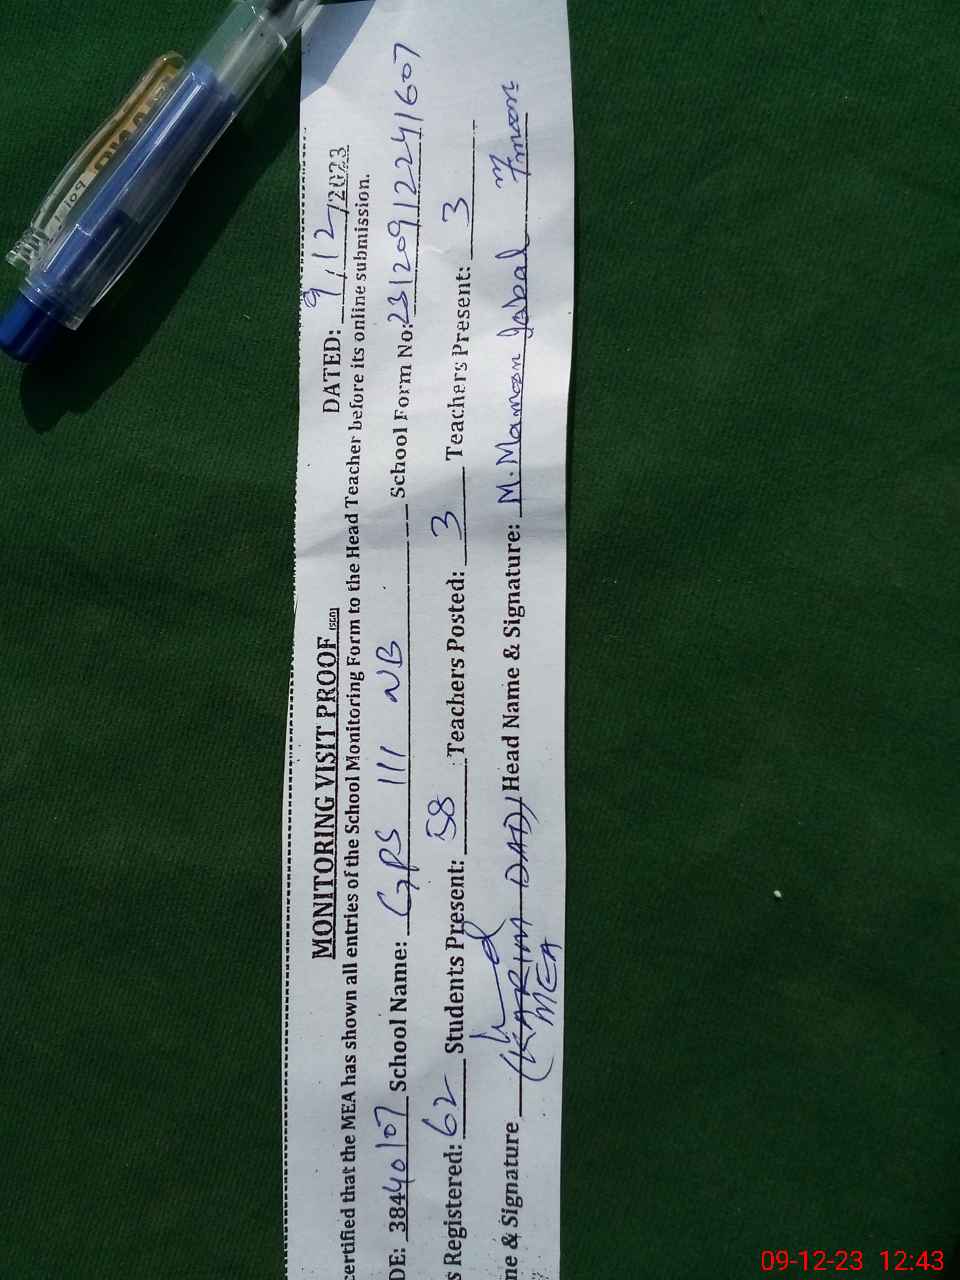 MONITORING VISIT PROOF (SED)
DATED: 9/12/2023
certified that the MEA has shown all entries of the School Monitoring Form to the Head Teacher before its online submission.
DE: 38440107 School Name: GPS 111 NB School Form No: 231209122241607
s Registered: 62 Students Present: 58 Teachers Posted: 3 Teachers Present: 3
me & Signature (KARIM DAD) Head Name & Signature: M. Mamoon Iqbal
MEA
09-12-23 12:43